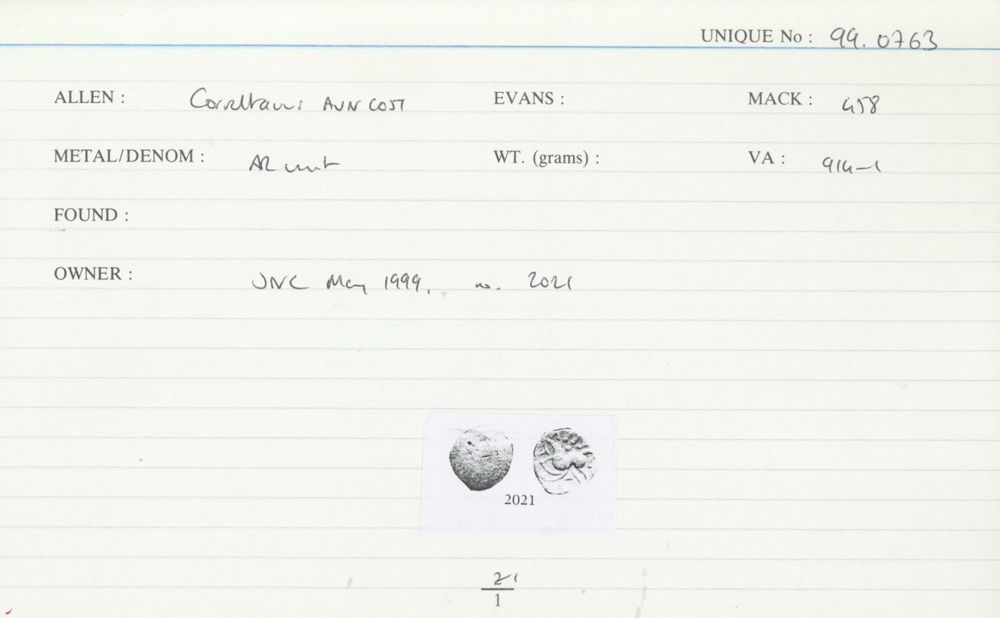 UNIQUE No : 99.0763
ALLEN : Corieltauvi AVN COST EVANS : MACK : 458
METAL/DENOM : AR unit WT. (grams) : VA : 914-1
FOUND :
OWNER : JNC May 1999, no. 2021
2021
21
1